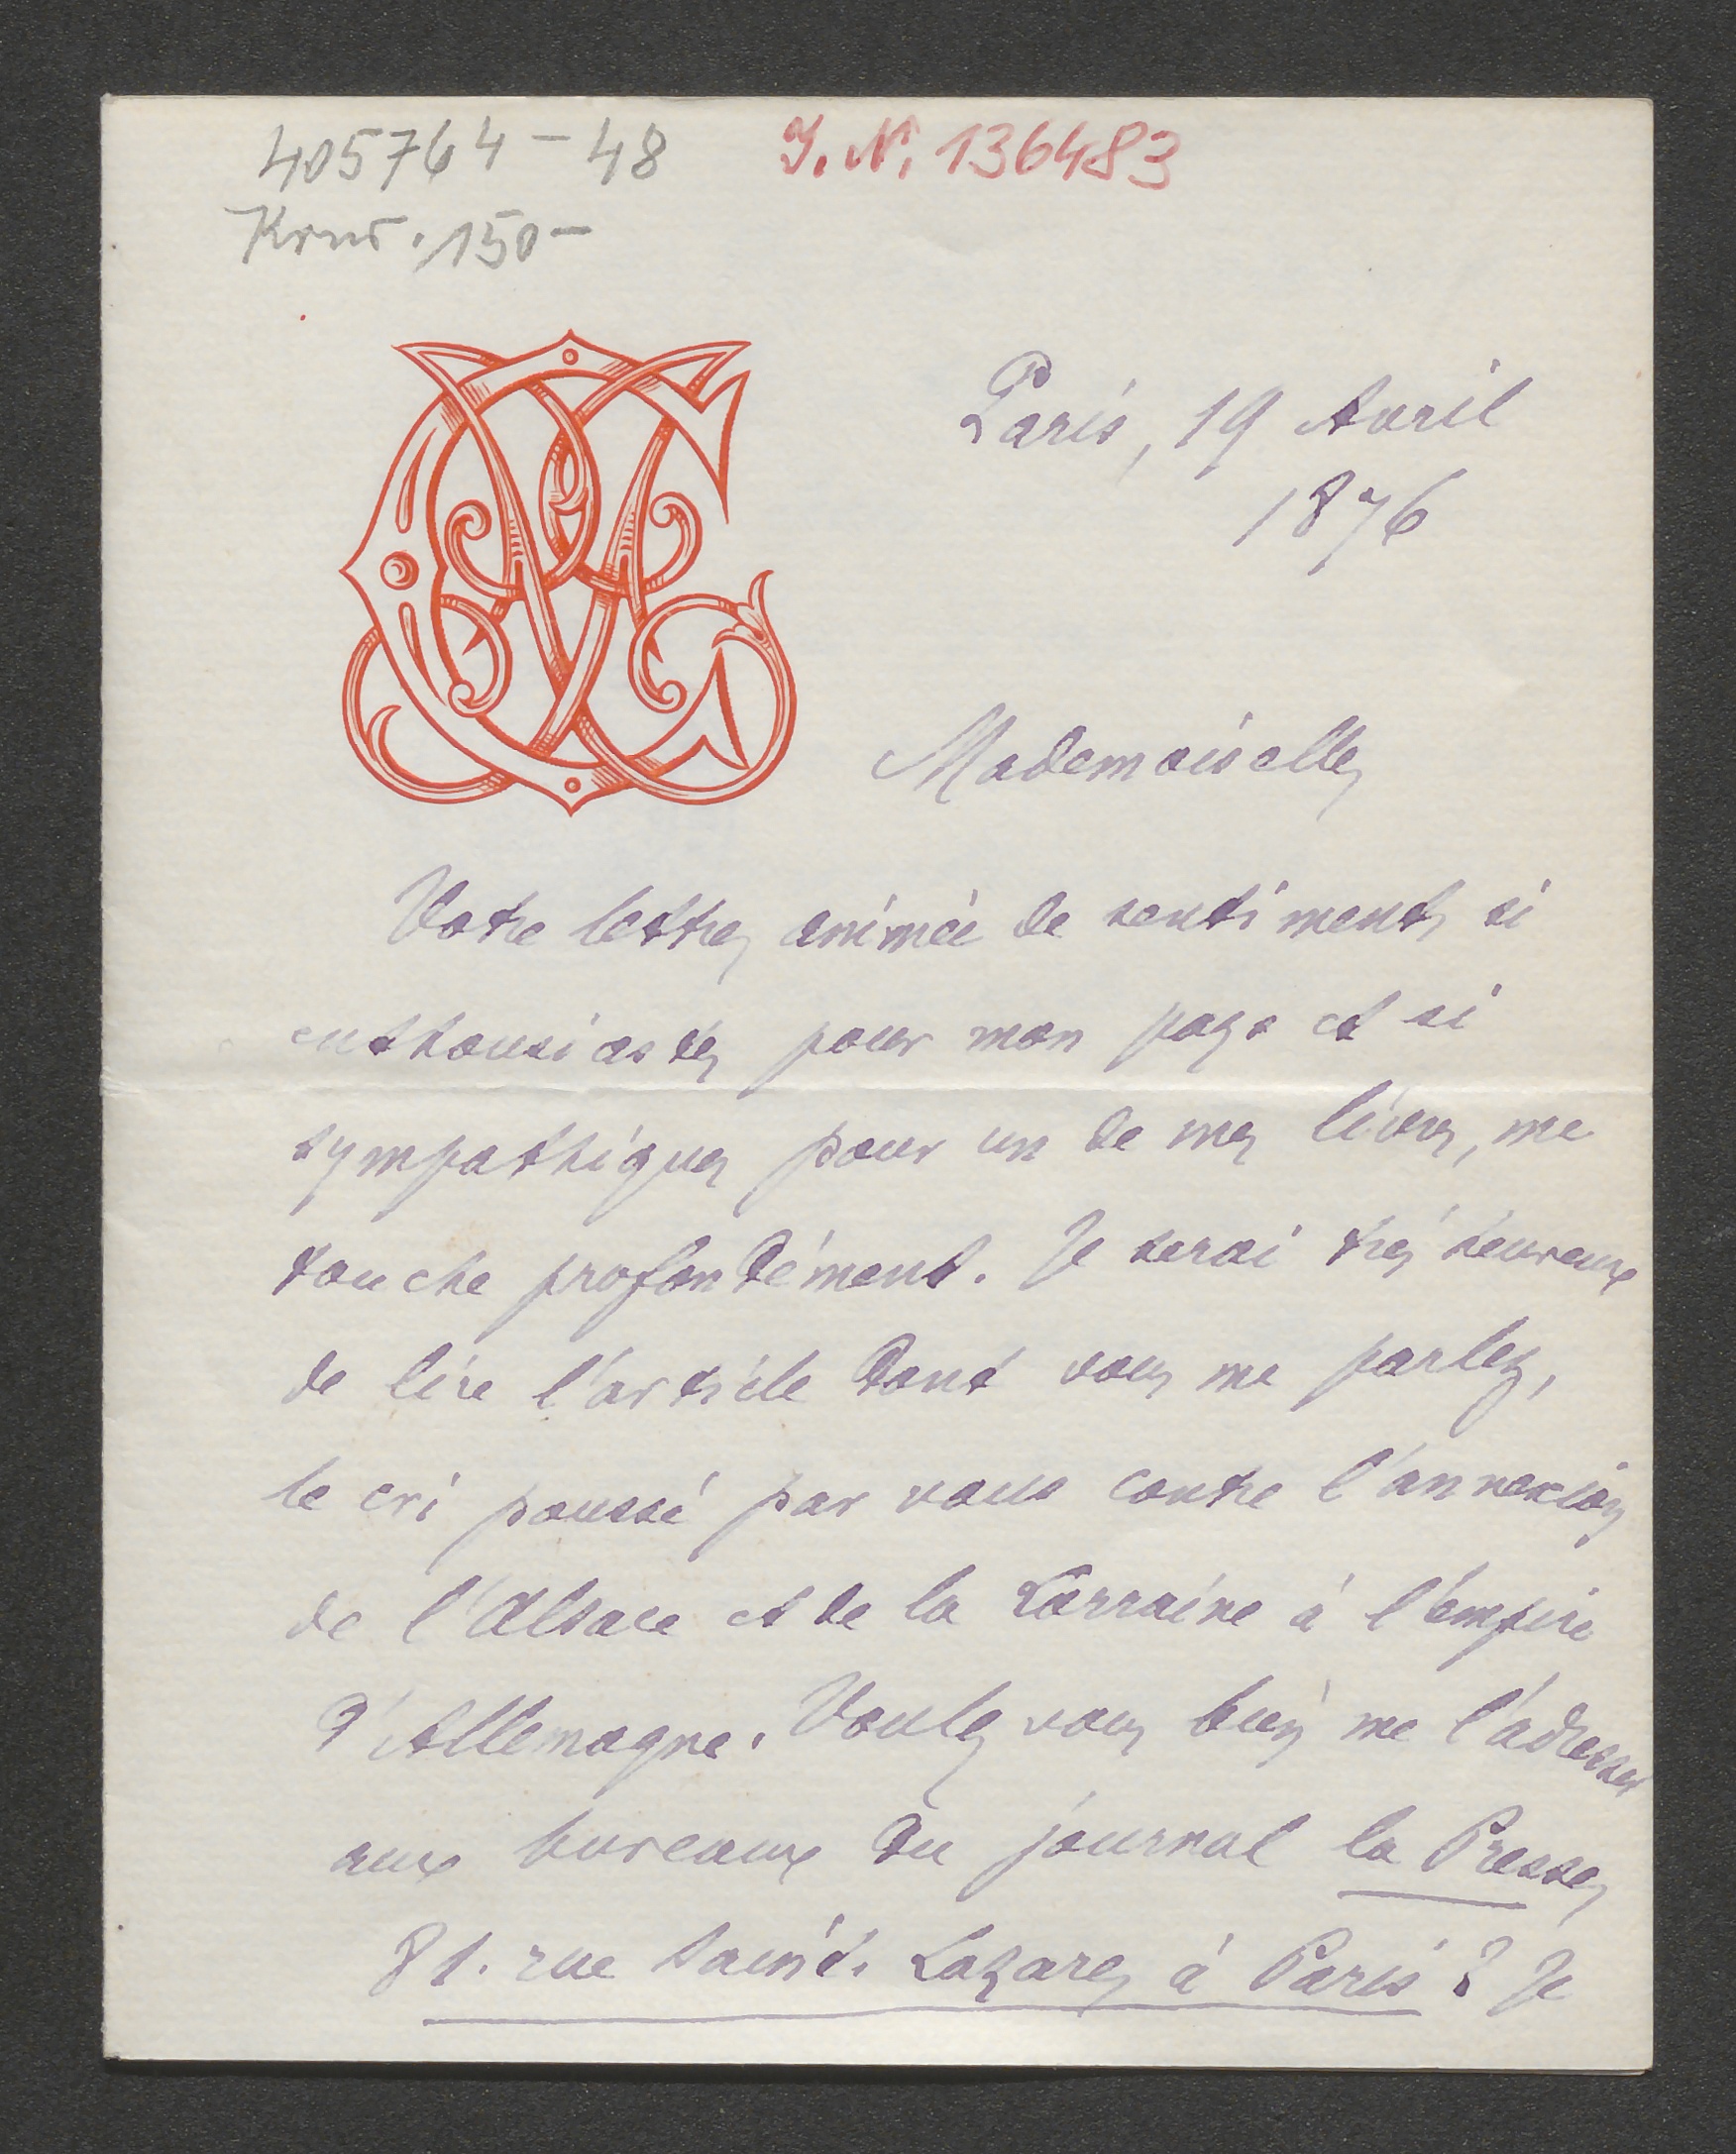 405764-48 J. N. 136483
150-
Paris, 19 Avril
1876
Mademoiselle,
Votre lettre, animée de sentiments si
enthousiastes pour mon pays et si
sympathiques pour un de mes livres, me
touche profondément. Je serai très heureux
de lire l'article dont vous me parlez,
le cri poussé par vous contre l'annexion
de l'Alsace et de la Lorraine à l'empire
d'Allemagne. Voulez vous bien me l'adresser
aux bureaux du journal la Presse,
81. rue Saint. Lazare, à Paris ? Je